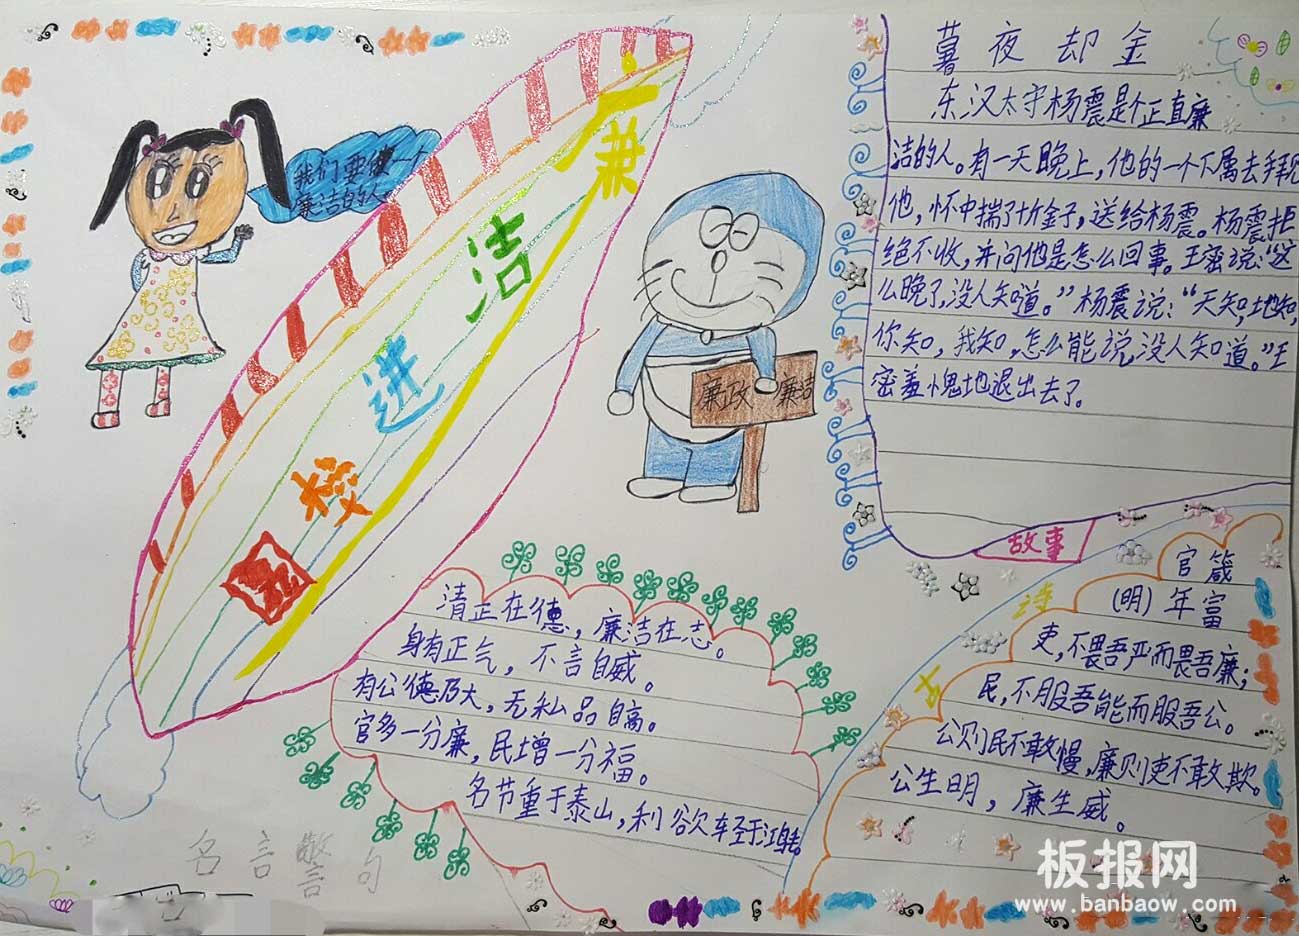 我们要做一个
廉洁的人
廉洁进校园
廉政 廉洁
暮夜却金
东汉太守杨震是个正直廉
洁的人。有一天晚上，他的一个下属去拜见
他，怀中揣了十斤金子，送给杨震。杨震拒
绝不收，并问他是怎么回事。王密说：“这
么晚了，没人知道。”杨震说：“天知，地知，
你知，我知，怎么能说没人知道。”王
密羞愧地退出去了。
故事
清正在德，廉洁在志。
身有正气，不言自威。
有公德乃大，无私品自高。
官多一分廉，民增一分福。
名节重于泰山，利欲轻于鸿毛。
名言警句
古诗
官箴
(明) 年富
吏，不畏吾严而畏吾廉；
民，不服吾能而服吾公。
公则民不敢慢，廉则吏不敢欺。
公生明，廉生威。
板报网
www.banbaow.com